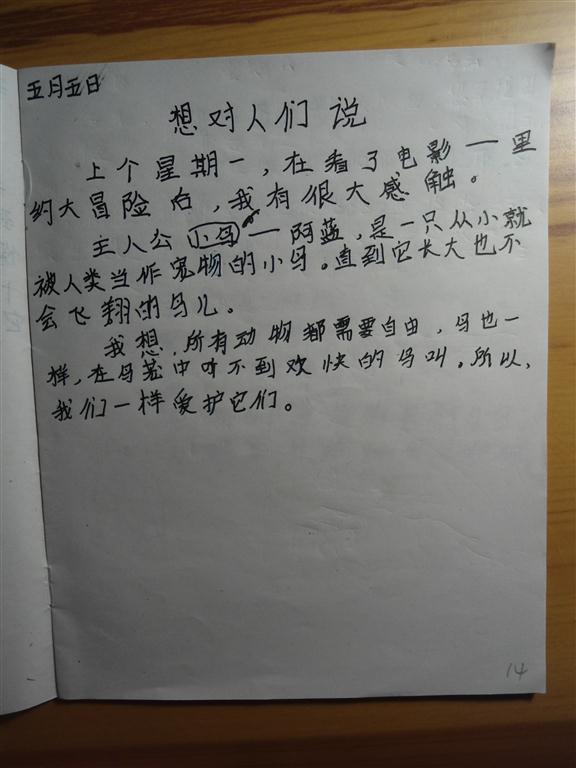 五月五日
想对人们说
上个星期一，在看了电影——里
约大冒险后，我有很大感触。
主人公小鸟——阿蓝，是一只从小就
被人类当作宠物的小鸟。直到它长大也不
会飞翔的鸟儿。
我想，所有动物都需要自由，鸟也一
样，在鸟笼中听不到欢快的鸟叫。所以，
我们一样爱护它们。
14